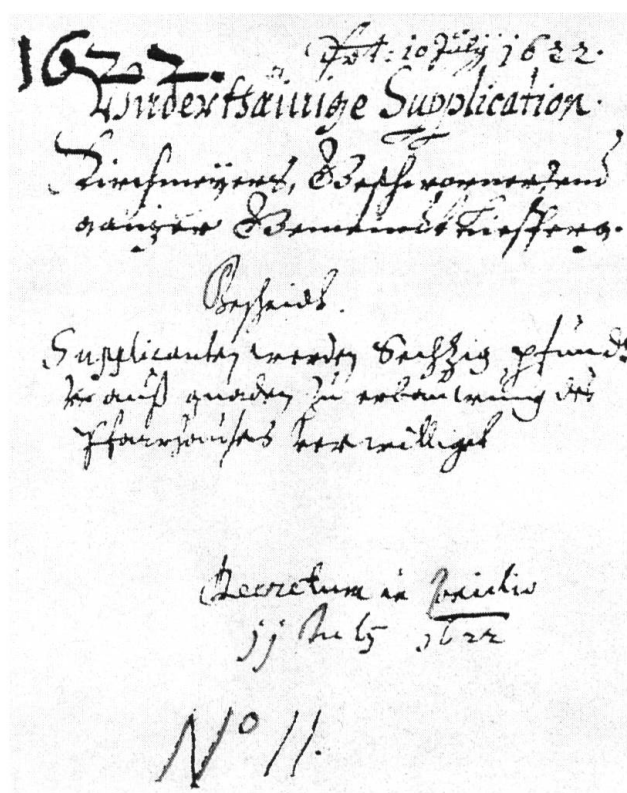 1622.
Prt: 10 July 1622.
Underthänige Supplication.
Kirchmeyers, Geschwornen und
ganzer Gemeindt
Bescheidt.
Supplicanten werden Sechzig pfundt
auß gnaden zu erbauwung des
Pfarrhauses verwilliget
Decretum in Consilio
11 July 1622
No 11.